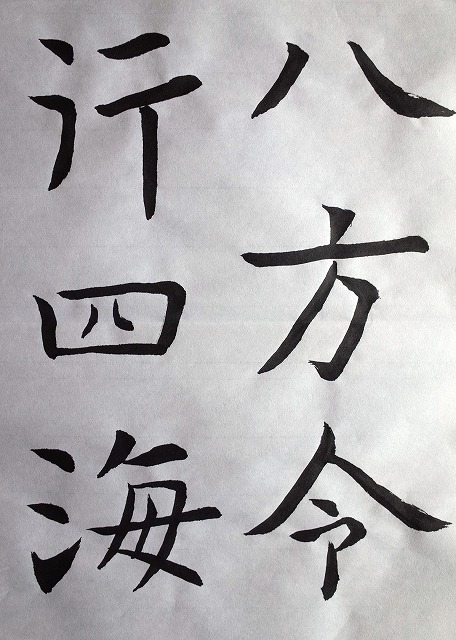 八方令
行四海